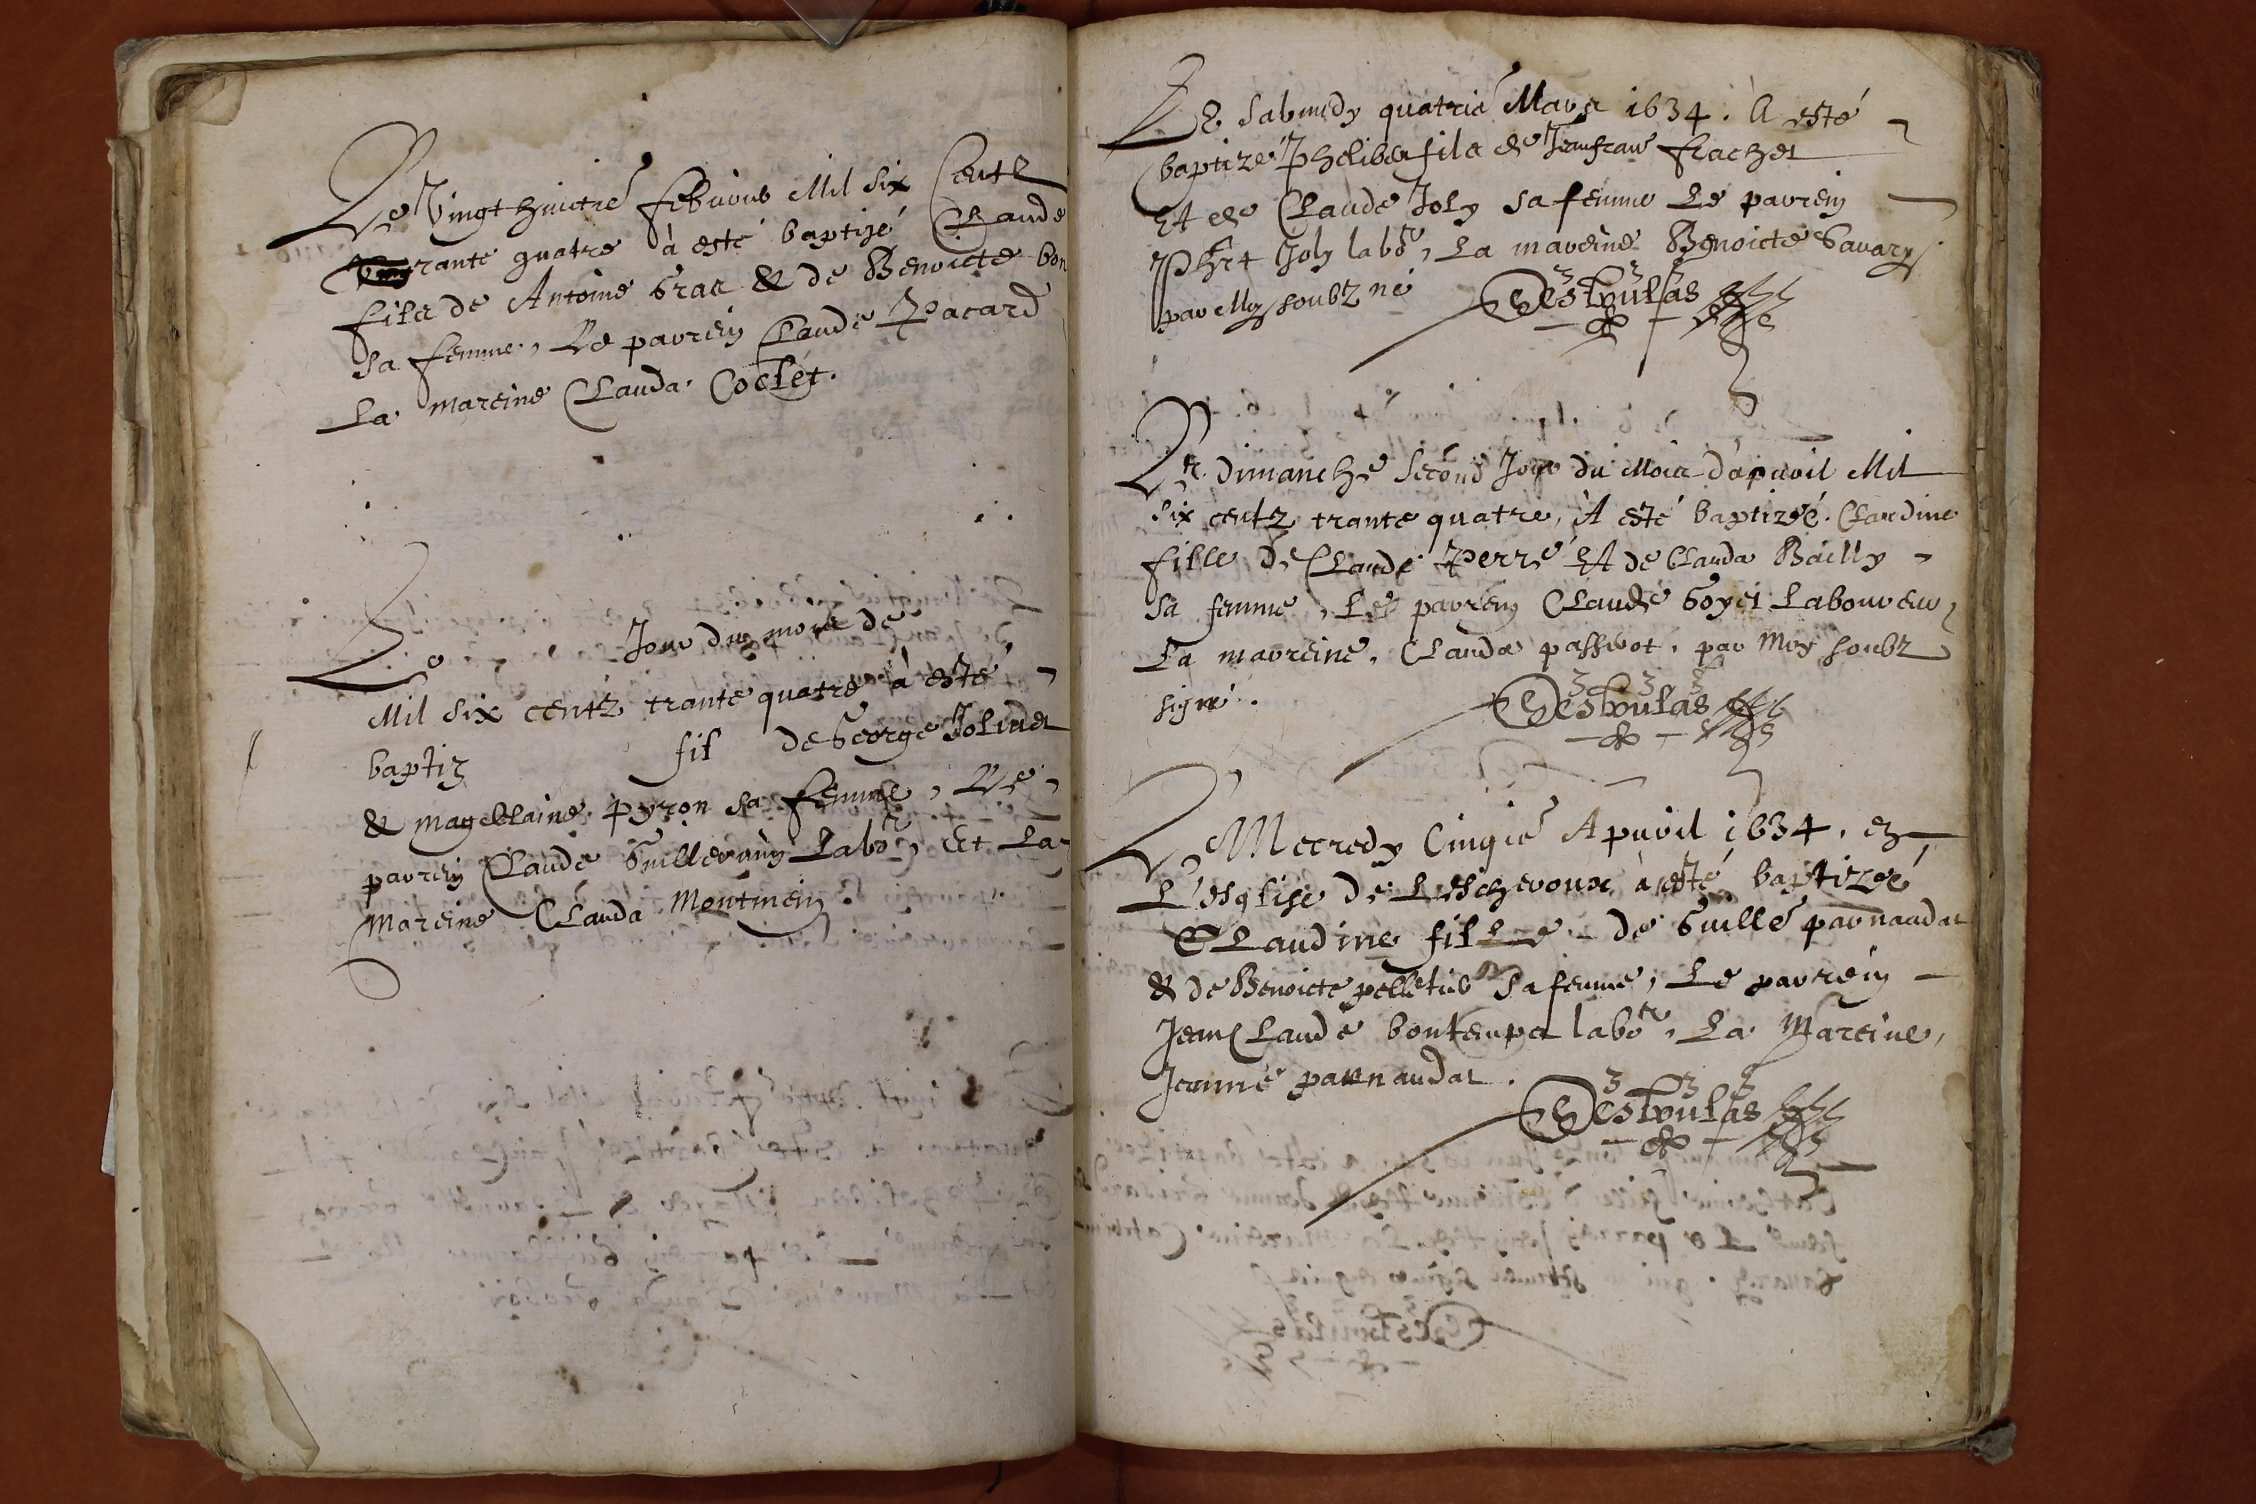 Le Vingt huictie febvrier Mil six Centz
trante quatre à esté baptisé Claude
filz de Antoine Gras & de Benoicte bon
sa femme, Le parrein Claude Pacard
La mareine Clauda Coclet.
Le Jour du mois de
Mil six centz trante quatre à esté
baptiz fil de George Jolivet
& magdelaine Pyron sa femme, Le
parrein Claude Guilleramin Labor, Et La
Mareine Clauda Montmein
Le sabmedy quatrie Mars 1634. A esté
baptize Phelibert filz de Jeanfrans flachet
Et de Claude Joly sa femme Le parrein
Phrt Joly labor, La mareine Benoicte Savary
par Moy soubz né Desboulas
Le dimanche second Jour du Mois d'apvril Mil
six centz trante quatre, A esté baptizéé Claudine
fille de Claude Perre Et de Clauda Bailly
sa femme, Le parrein Claude Goyet Laboureur
La marreine, Clauda passerot, par Moy soubz
signé. Desboulas
Le Mecredy Cinqie Apvril 1634, en
L'esglise de Lescheroux à esté baptizéé
Claudine fille de Guille parnaudat
& de Benoicte pelletier sa femme, Le parrein
Jean Claude bontemps labor, La Mareine,
Jeanne parnaudat.
Desboulas